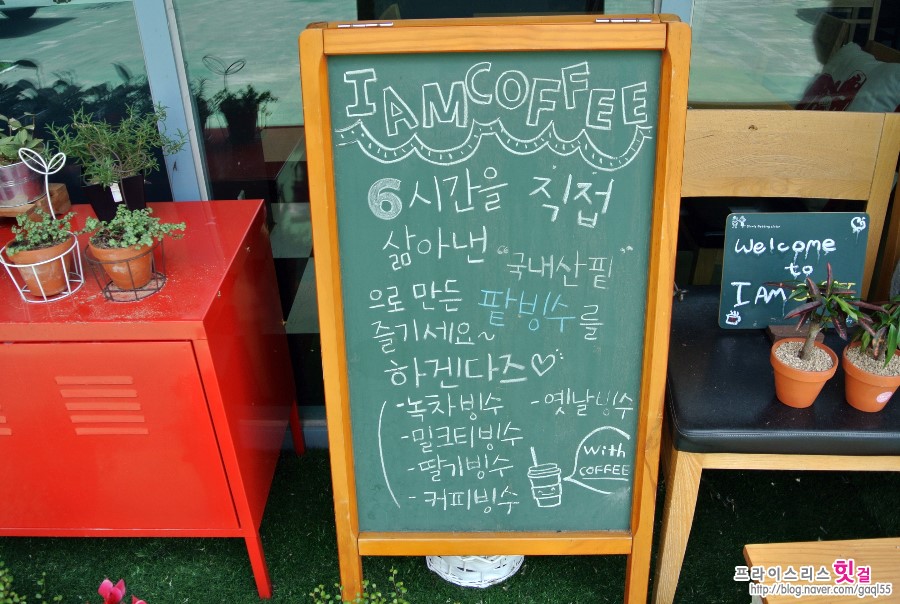 I AM COFFEE
6시간을 직접
삶아낸 "국내산팥"
으로 만든 팥빙수를
즐기세요~
하겐다즈♡
-녹차빙수 -옛날빙수
-밀크티빙수
-딸기빙수
-커피빙수
with
COFFEE
Welcome
to
I AM
프라이스리스 힛걸
http://blog.naver.com/gaql55